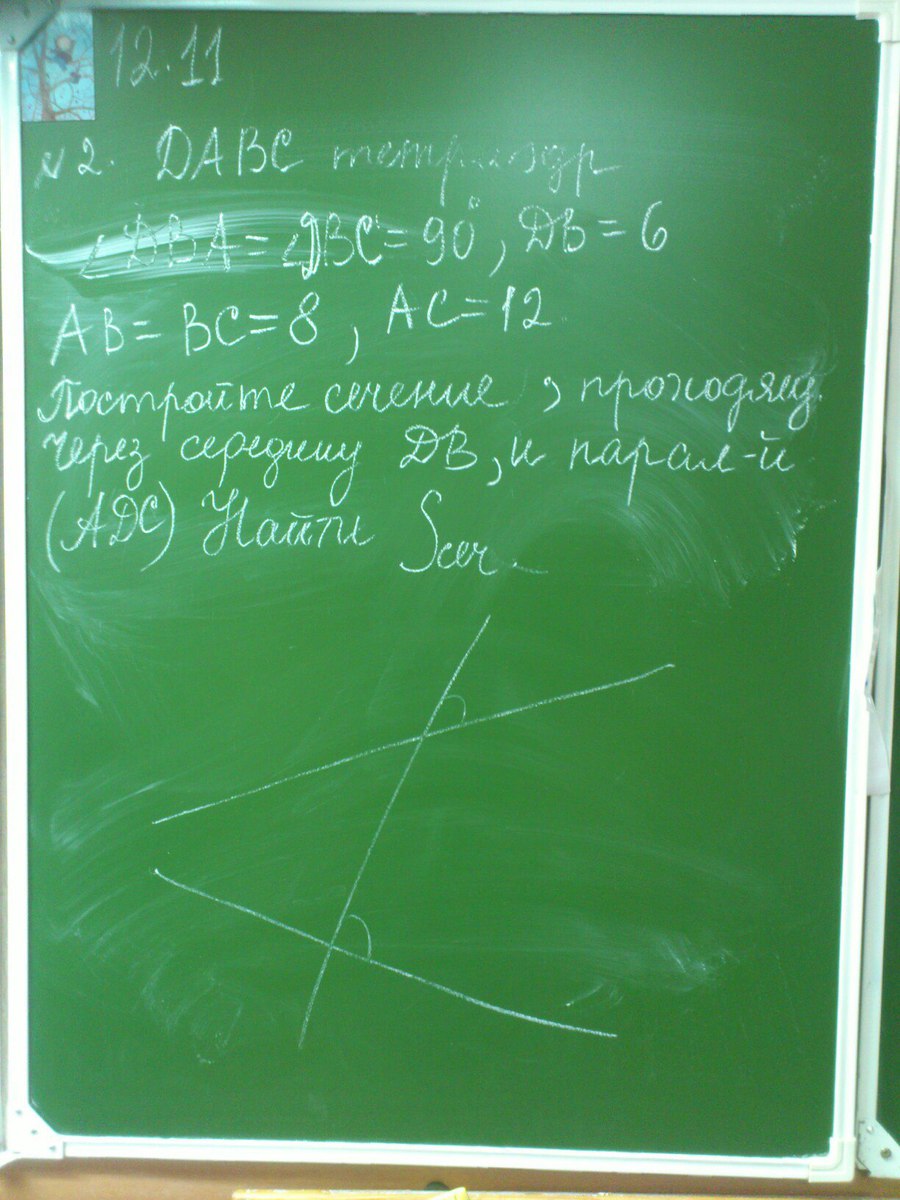 12.11
№2. DABC тетраэдр
∠DBA = ∠DBC = 90°, DB = 6
AB = BC = 8, AC = 12
Постройте сечение, проходящ.
через середину DB, и парал-й
(ADC) Найти Sсеч.